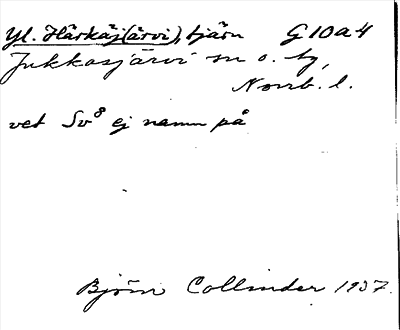 Yl. Härkäj(ärvi), tjärn G10a4
Jukkasjärvi sn o. tg,
Norrb. l.
vet Sv⁸ ej namn på
Björn Collinder 1937.